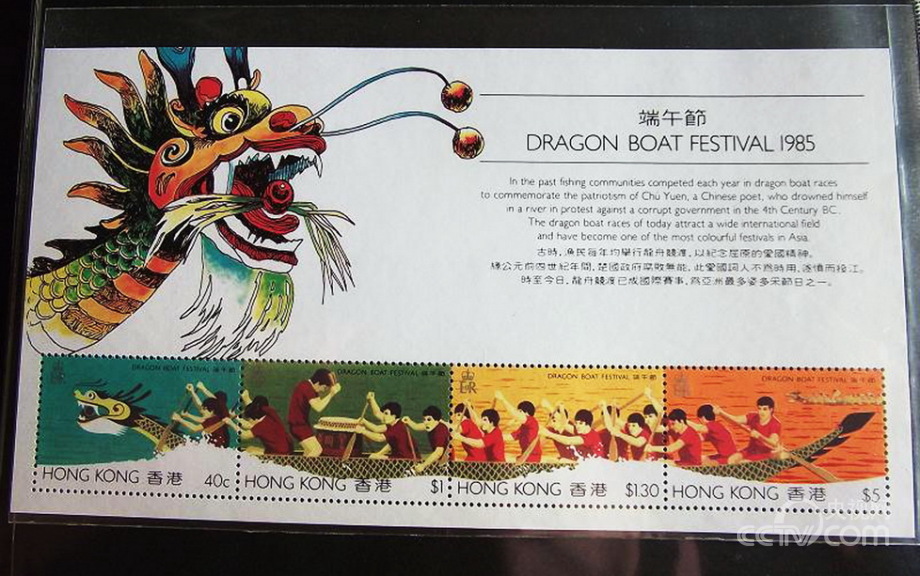 端午節
DRAGON BOAT FESTIVAL 1985
In the past fishing communities competed each year in dragon boat races
to commemorate the patriotism of Chu Yuen, a Chinese poet, who drowned himself
in a river in protest against a corrupt government in the 4th Century BC.
The dragon boat races of today attract a wide international field
and have become one of the most colourful festivals in Asia.
古時，漁民每年均舉行龍舟競渡，以紀念屈原的愛國精神。
緣公元前四世紀年間，楚國政府腐敗無能，此愛國詞人不為時用，遂憤而投江。
時至今日，龍舟競渡已成國際賽事，為亞洲最多姿多采節日之一。
DRAGON BOAT FESTIVAL 端午節
DRAGON BOAT FESTIVAL 端午節
DRAGON BOAT FESTIVAL 端午節
DRAGON BOAT FESTIVAL 端午節
HONG KONG 香港 40c
HONG KONG 香港 $1
HONG KONG 香港 $1.30
HONG KONG 香港 $5
cctv.com